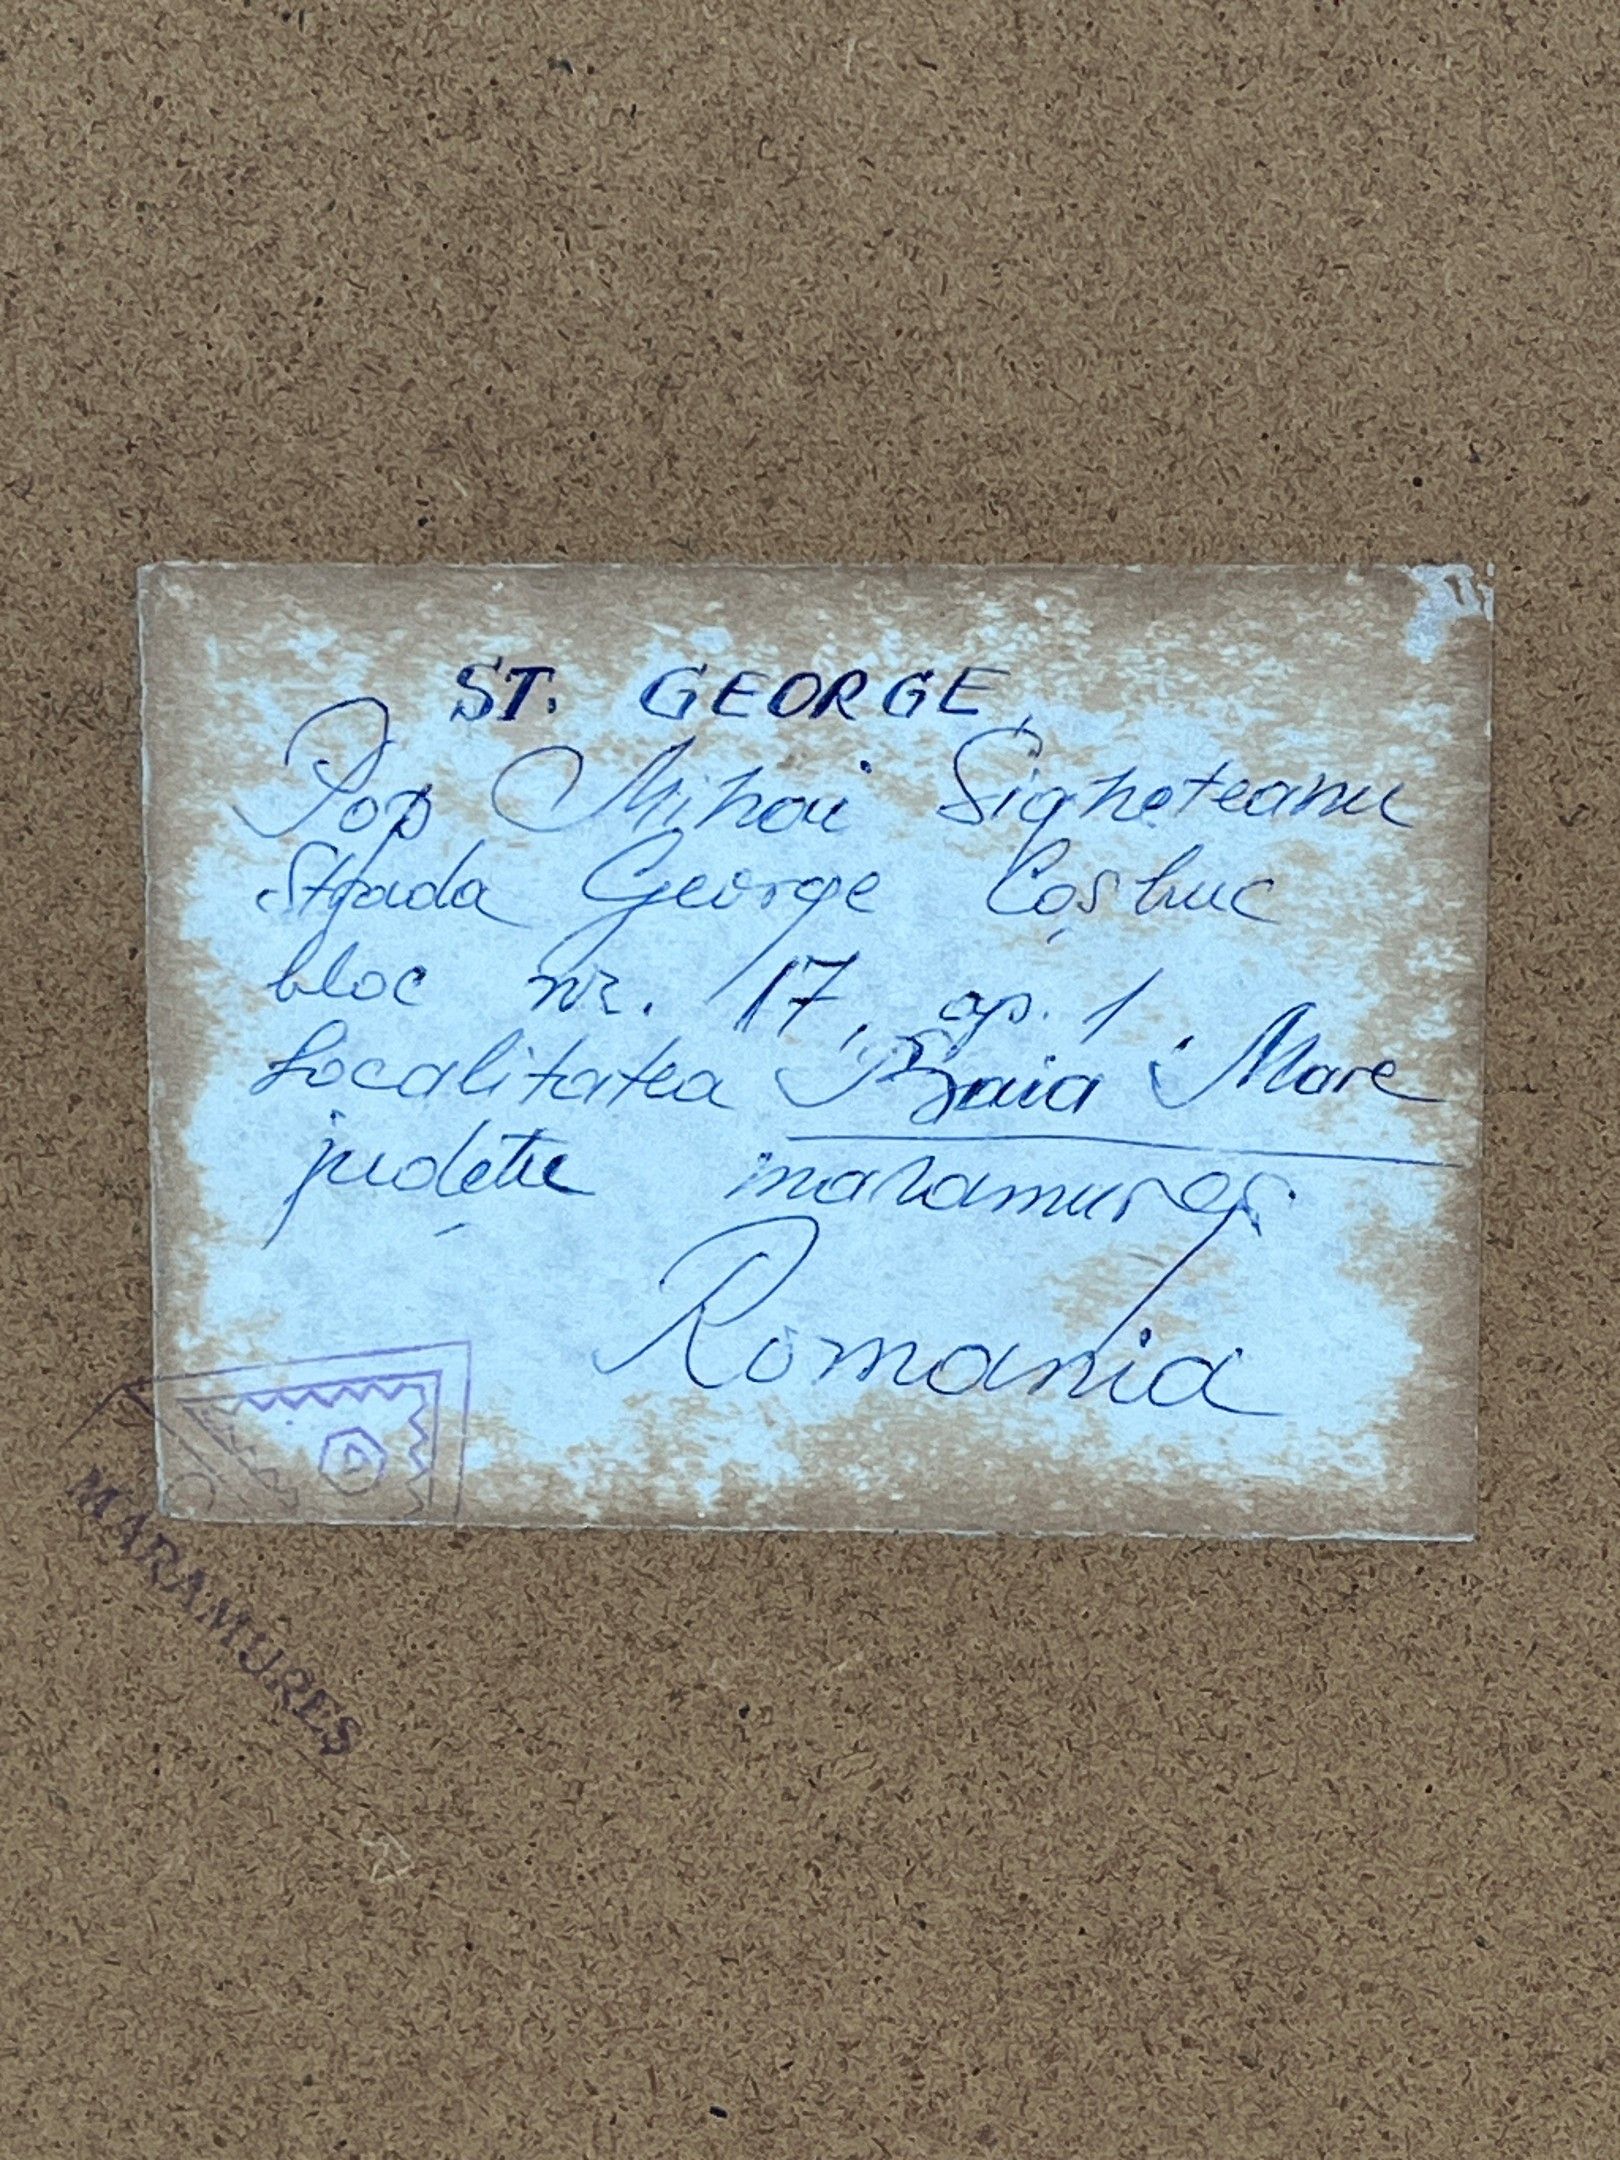 ST. GEORGE
Pop Mihai Sigheteanu
Strada George Coșbuc
bloc nr. 17, ap. 1
Localitatea Baia Mare
județu maramureș
Romania
MARAMURES